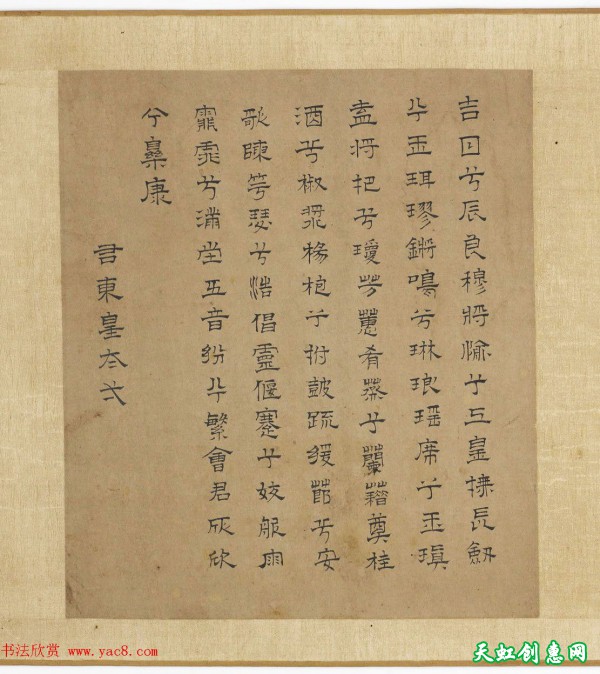 吉日兮辰良穆將愉兮上皇撫長劔
兮玉珥璆鏘鳴兮琳琅瑶席兮玉瑱
盍將把兮瓊芳蕙肴蒸兮蘭藉奠桂
酒兮椒漿揚枹兮拊鼓疏緩節兮安
歌陳竽瑟兮浩倡靈偃蹇兮姣服雨
霏霏兮滿堂五音紛兮繁會君欣欣
兮樂康
右東皇太弌
书法欣赏 www.yac8.com
天虹创惠网